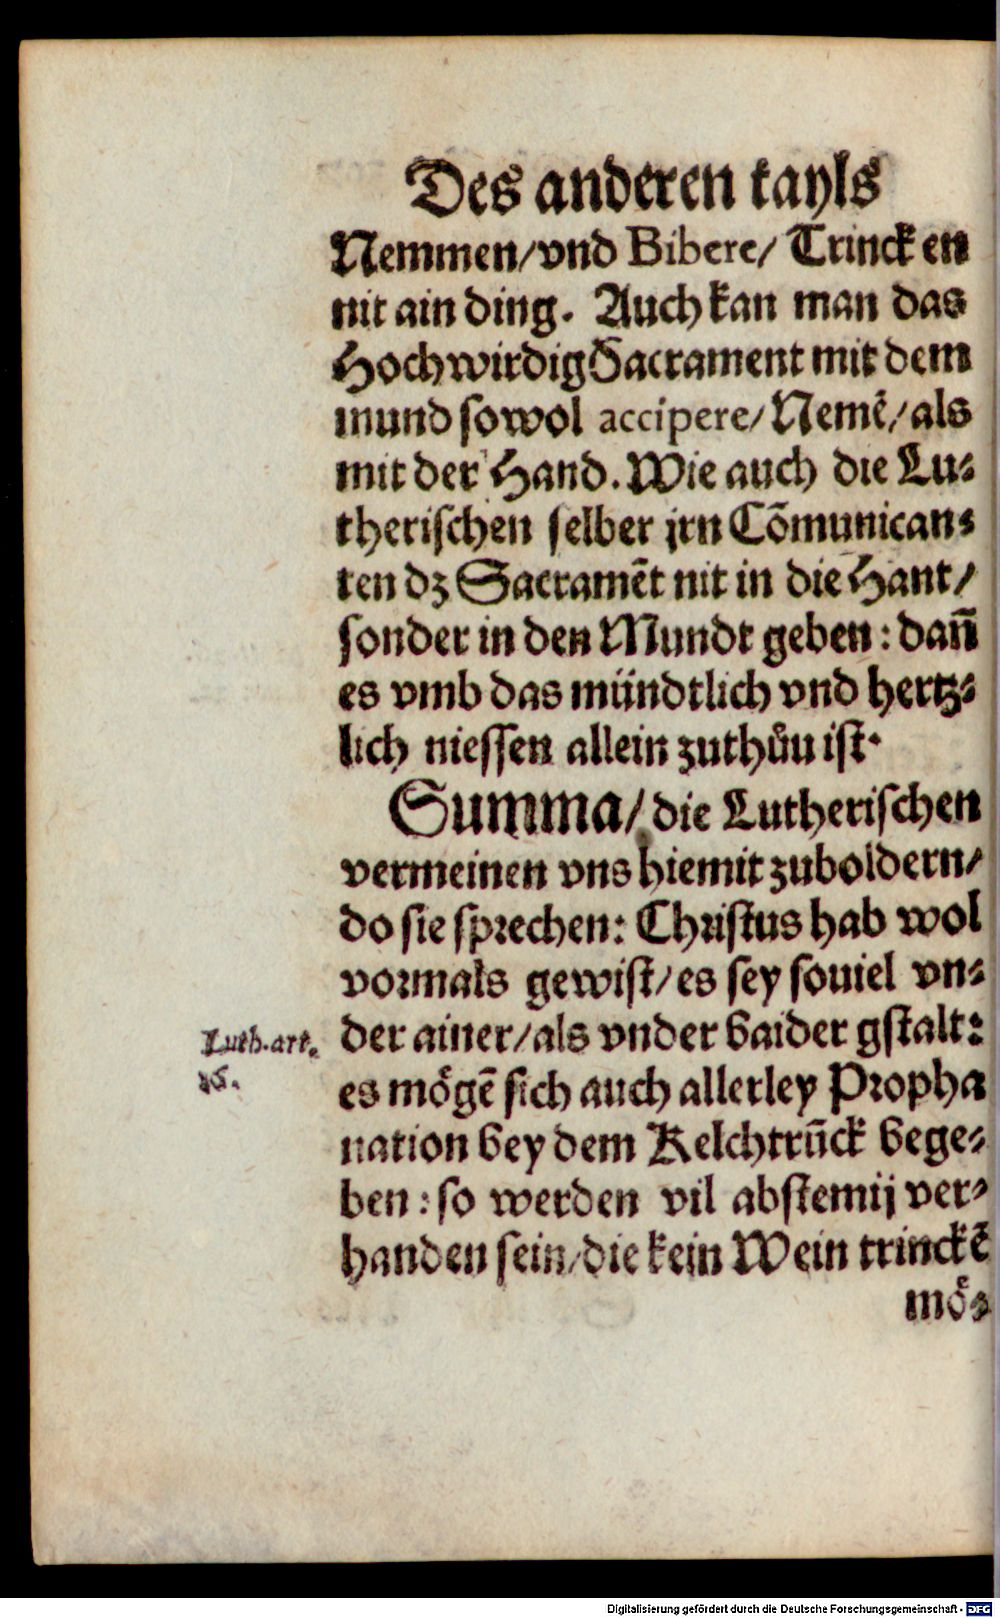 Des anderen tayls
Nemmen/vnd Bibere/ Trincken
nit ain ding. Auch kan man das
Hochwirdig Sacrament mit dem
mund sowol accipere/Nemẽ/als
mit der Hand. Wie auch die Lu-
therischen selber jrn Cõmunican-
ten dz Sacramẽt nit in die Hant/
sonder in den Mundt geben: dañ
es vmb das mündtlich vnd hertz-
lich niessen allein zuthůu ist.
Summa/ die Lutherischen
vermeinen vns hiemit zuboldern/
do sie sprechen: Christus hab wol
vormals gewist/es sey souiel vn-
Luth. art.
der ainer/als vnder baider gstalt:
es mögẽ sich auch allerley Propha
nation bey dem Kelchtrũck bege-
ben: so werden vil abstemij ver-
handen sein/die kein Wein trinckẽ
mö-
Digitalisierung gefördert durch die Deutsche Forschungsgemeinschaft - DFG